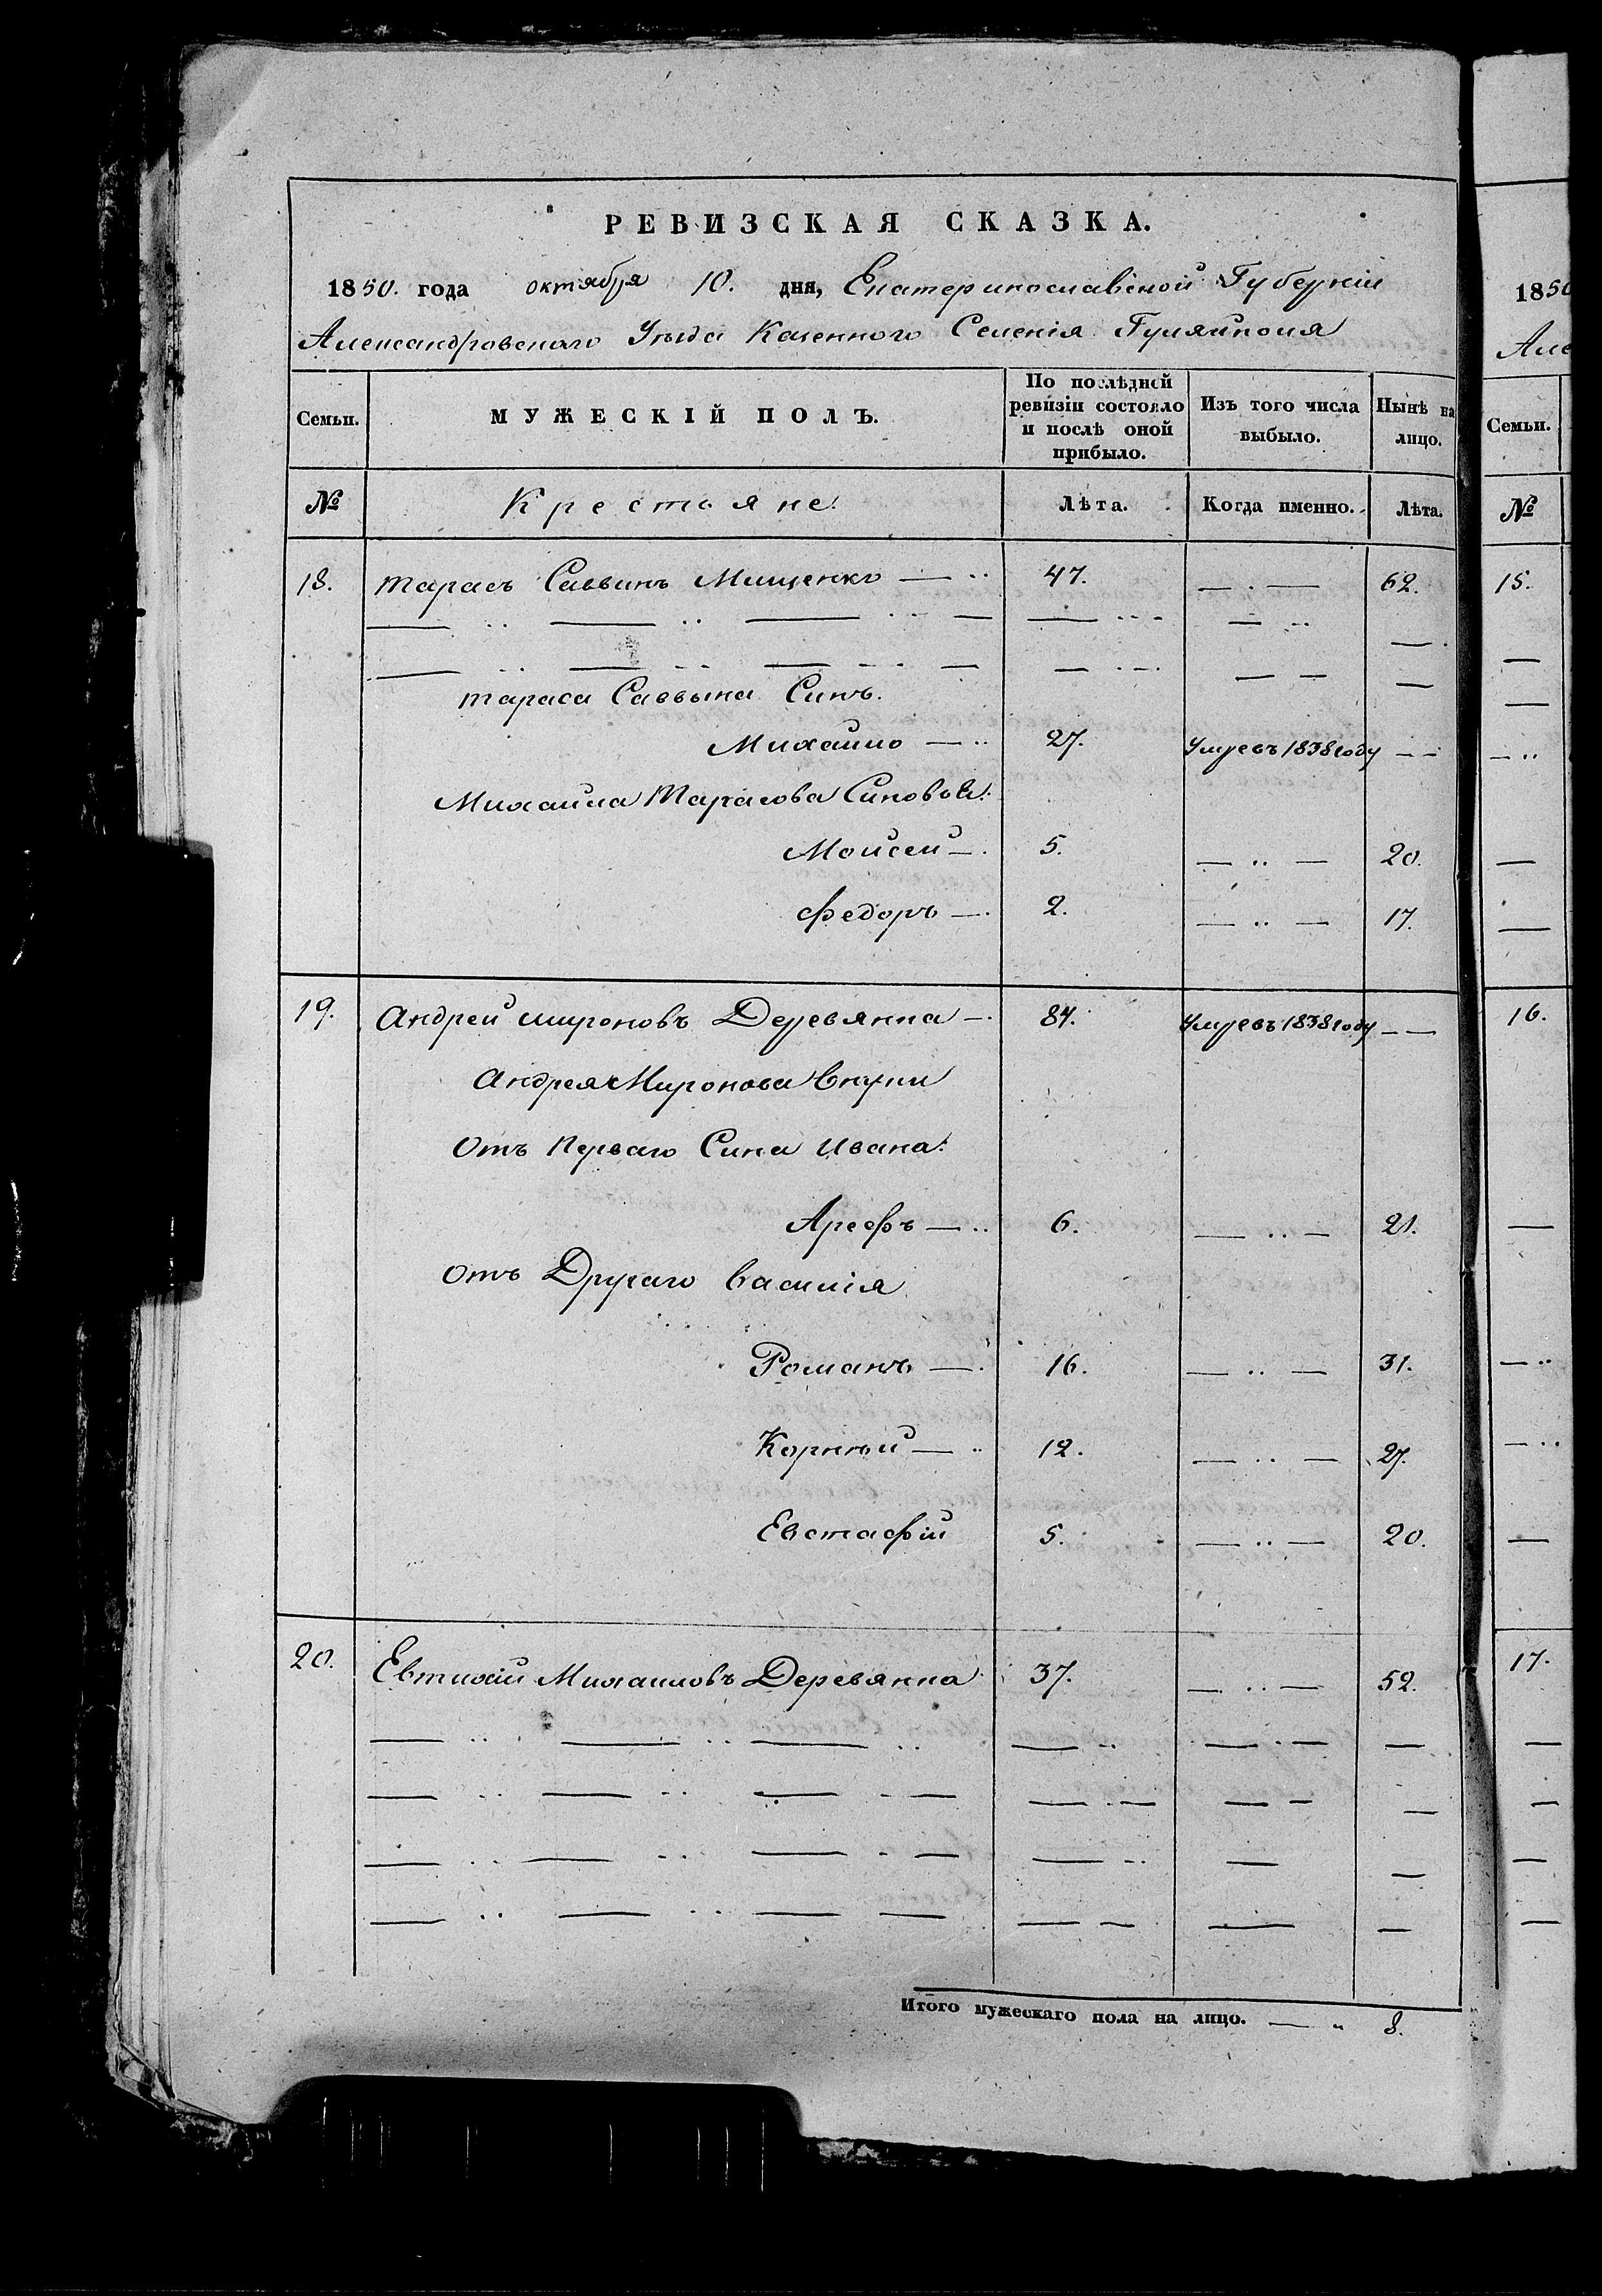 РЕВИЗСКАЯ СКАЗКА.
1850. года октября 10. дня, Екатеринославской Губерніи
Александровскаго Уѣзда Казенного Селенія Гуляйполя
Семьи. МУЖЕСКІЙ ПОЛЪ. По послѣдней ревизіи состояло и послѣ оной прибыло. Изъ того числа выбыло. Нынѣ на лицо.
№ Крестьяне. Лѣта. Когда именно. Лѣта.
18. Тарасъ Саввинъ Мищенко — .. 47. — . — 62.
Тараса Саввына Синъ.
Михайло — .. 27. Умревъ 1838 году — —
Михайла Тарасова Синовья:
Моисей — . 5. — .. — 20.
Федоръ — . 2. — .. — 17.
19. Андрей Мироновъ Деревянка — . 84. Умревъ 1838 году — —
Андрея Миронова Внуки
Отъ Перваго Сина Ивана:
Арефъ — .. 6. — .. — 21.
Отъ Другаго Василія
Романъ — . 16. — .. — 31.
Корнѣй — .. 12. — .. — 27.
Евстафій 5. — .. — 20.
20. Евтихій Михаиловъ Деревянка 37. — .. — 52.
Итого мужескаго пола на лицо. — „ 8.
1850
Але
Семьи.
№
15.
16.
17.